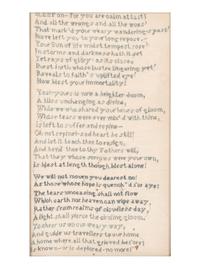 And all the wrongs and all the woes'
That mark'd your weary wandering years!
Have left you to your long repose
Your Sun of life midst tempest rose
In storms and darkness hath it set
Yet rays of glory as its close
Burst forth whose lustre lingering yet!
Reveals to Faith's uplifted eye!
How blest your immortality!
Your years is now a brighter doom,
A bliss unchanging as divine,
While we who shared your hours of gloom,
Whose tears were ever mix'd with thine,
Is left to suffer and repine—
Oh not repine—and heart be still!
And let it teach thee to resign,
And bend thee to thy Fathers will,
That they whose pangs were your own,
Is blest at length though, blest alone!
We will not mourn you dearest no!
As those whose hope is quench'd is for aye!
The tears unceasing shall not flow
Which earth nor heaven can wipe away,
Rather from realms of cloudless day,
A light shall pierce the circling gloom,
To cheer us on our weary way,
And guide us travellers to our home
A home where all that grieved before;
Is known or is deplored no more!